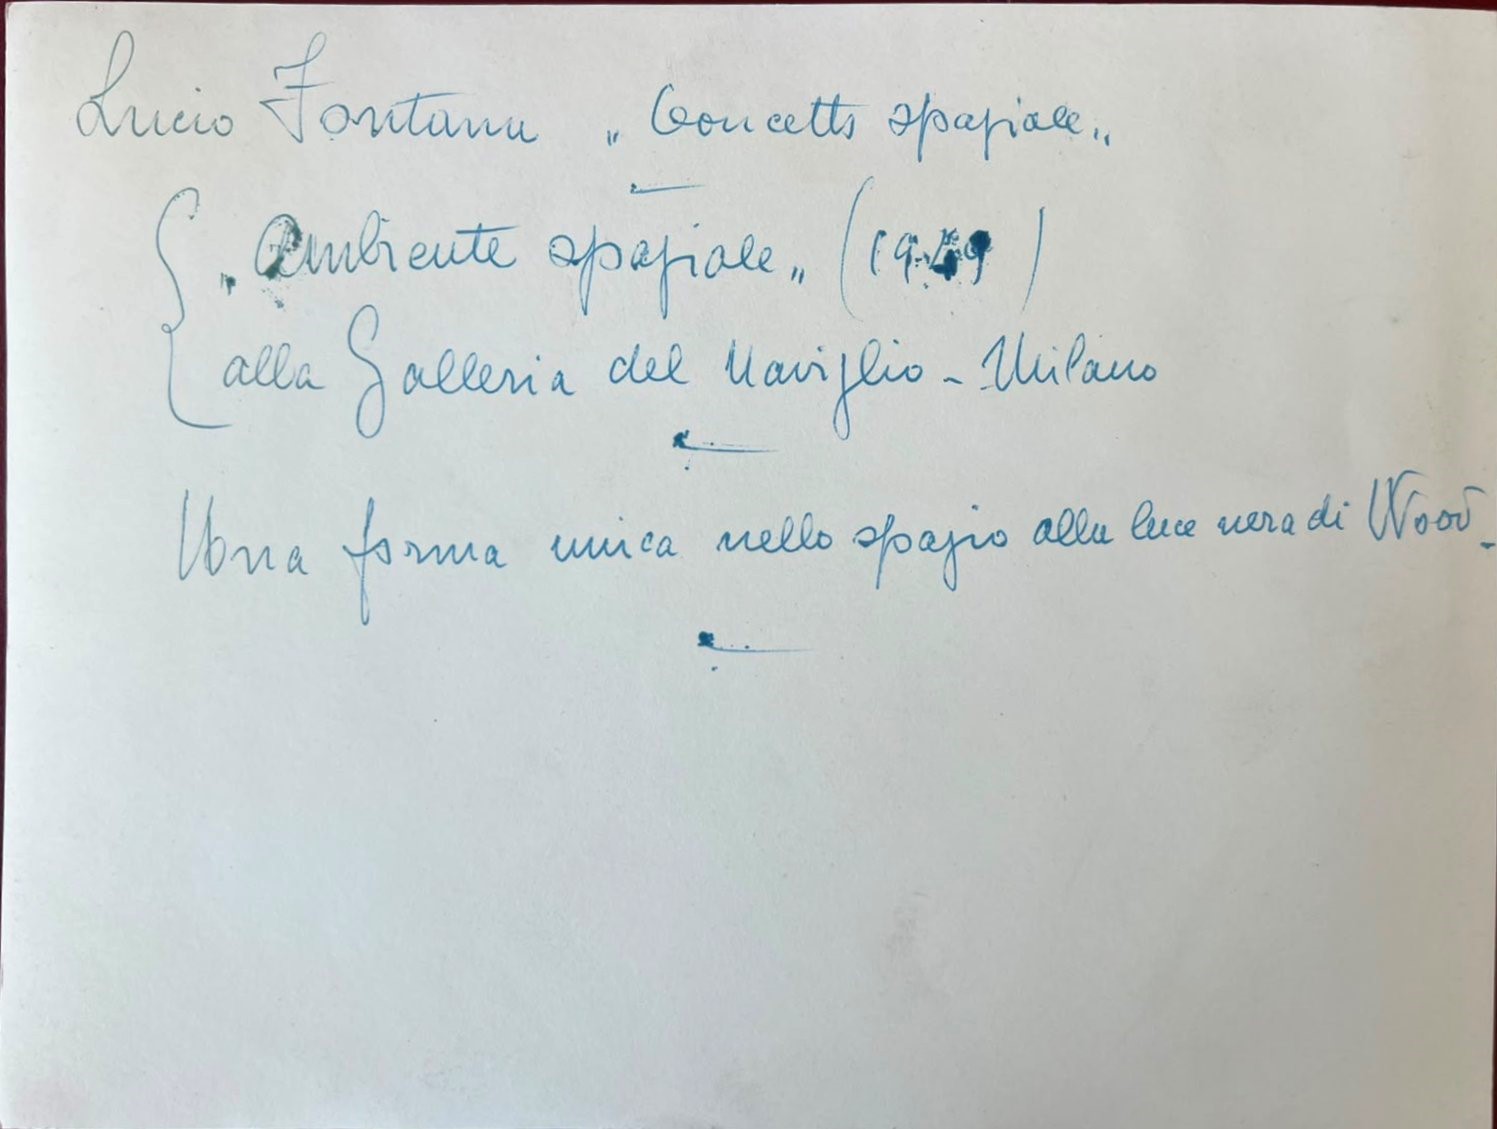 Lucio Fontana „Concetto spaziale„
„Ambiente spaziale„ (1949)
alla Galleria del Naviglio - Milano
Una forma unica nello spazio alla luce nera di Wood -